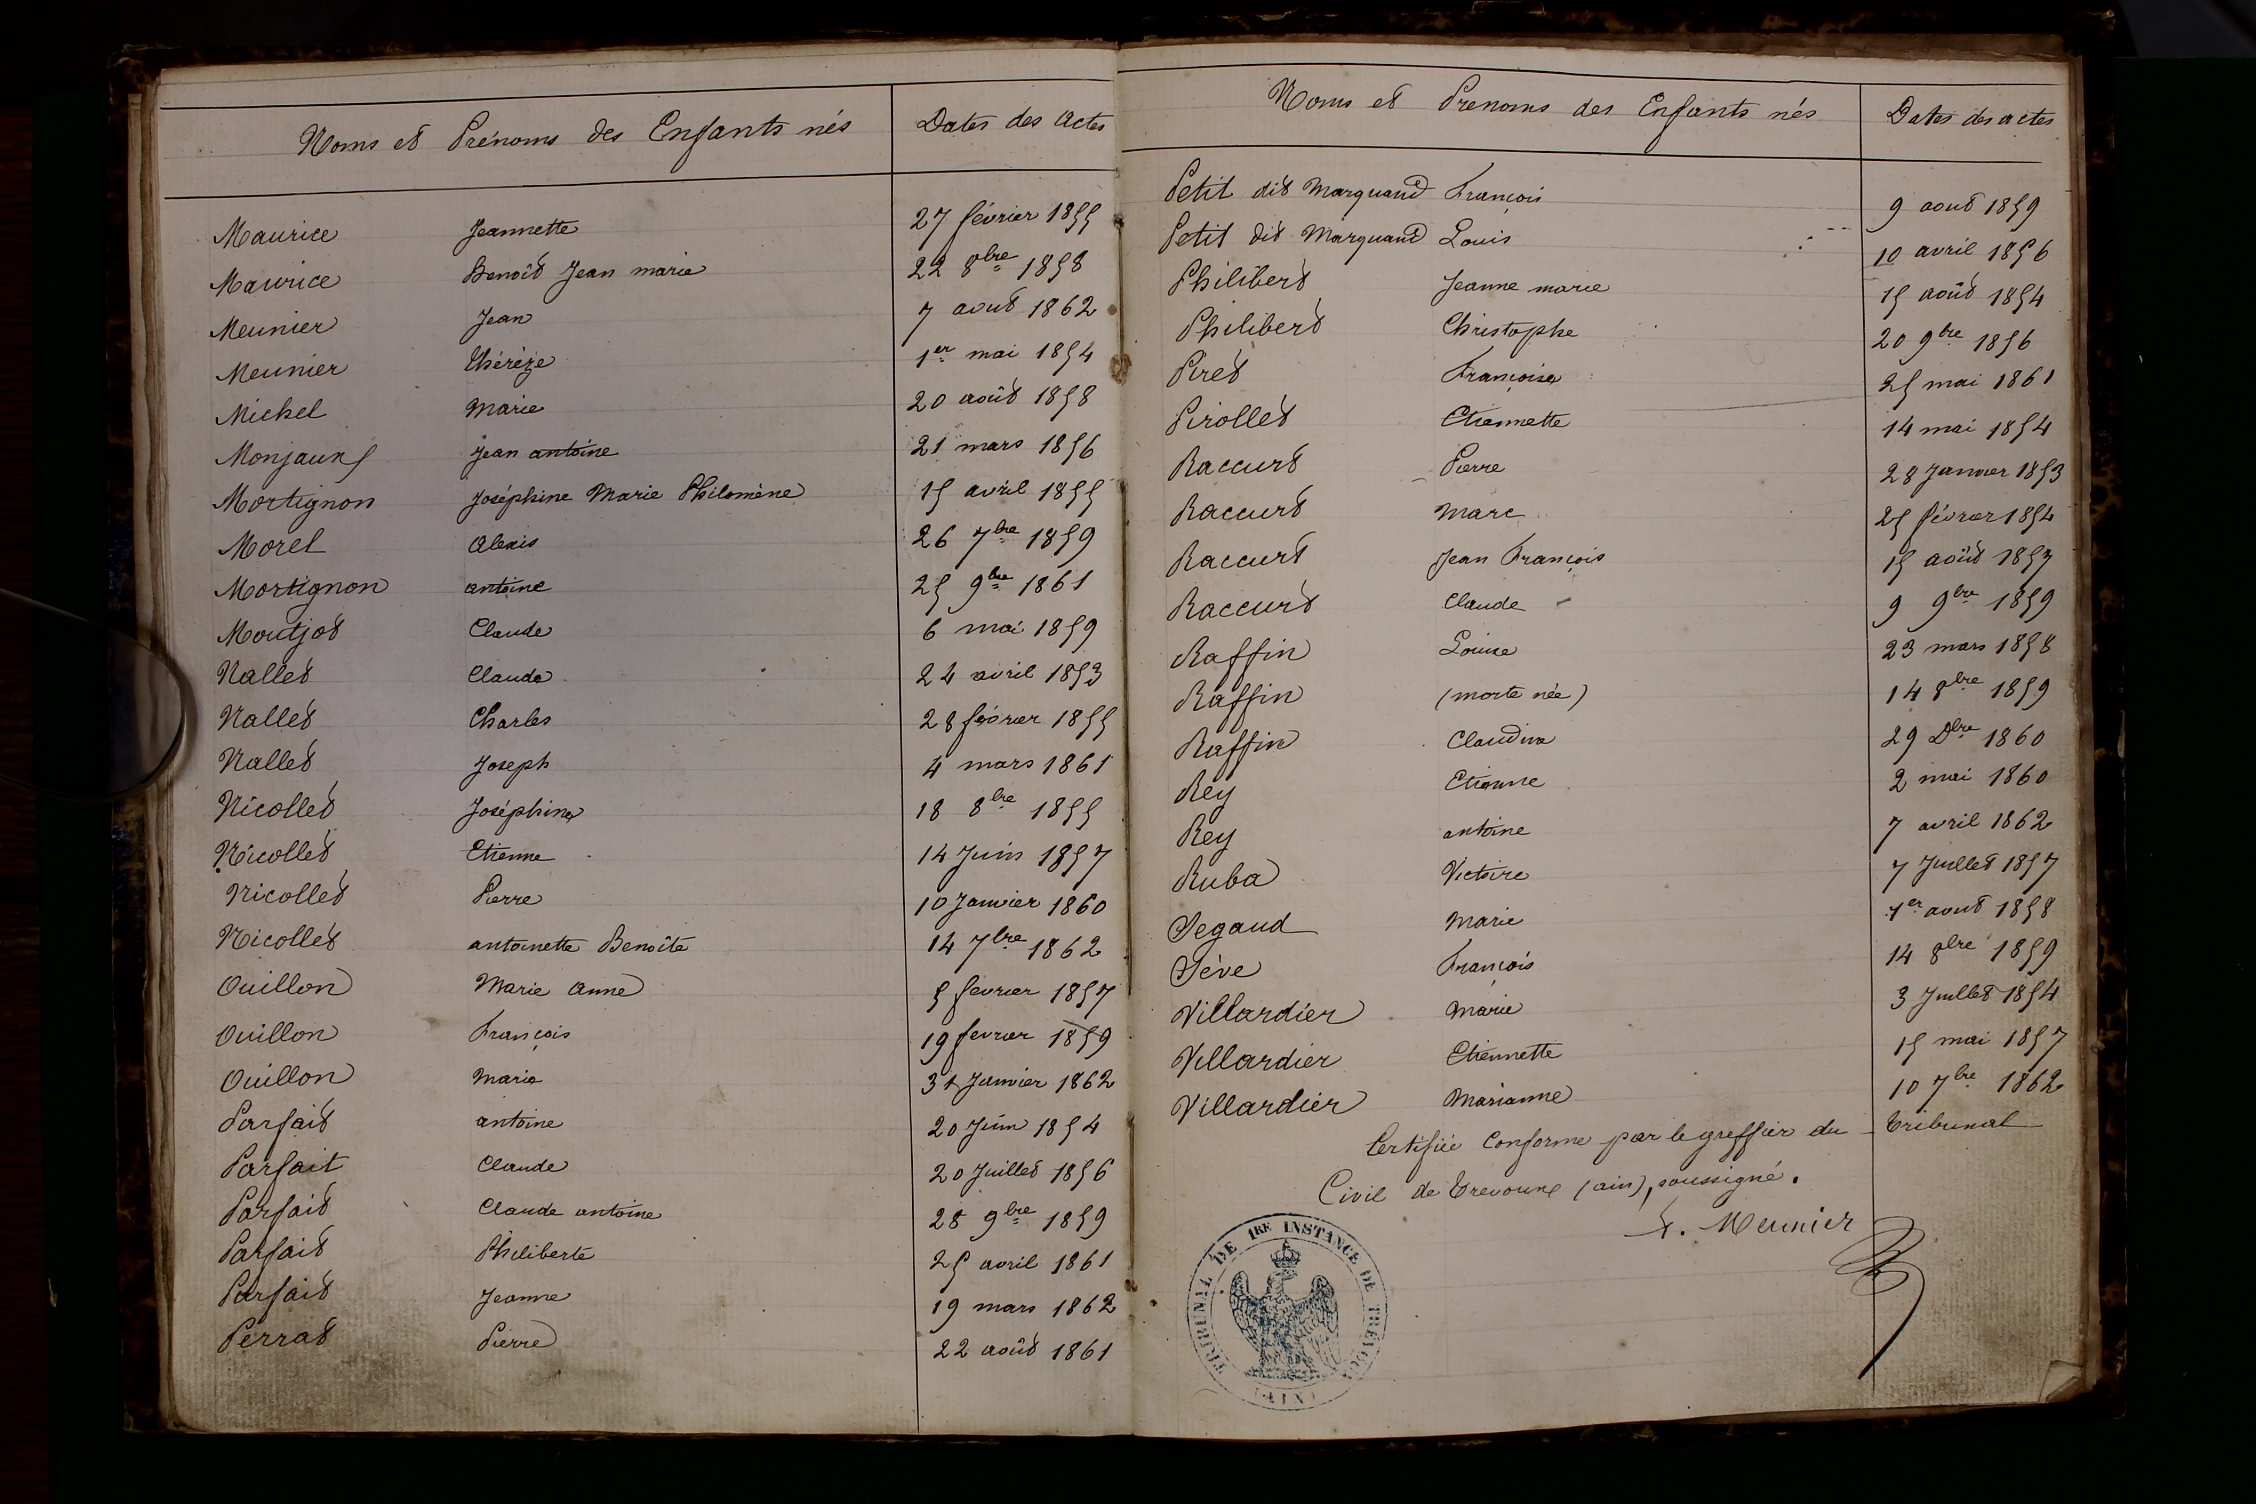 Noms et Prénoms des Enfants nés Dates des Actes
Maurice Jeannette 27 février 1855
Maurice Benoît Jean marie 22 8bre 1858
Meunier Jean 7 aout 1862
Meunier Thérèze 1er mai 1854
Michel Marie 20 août 1858
Monjaux Jean antoine 21 mars 1856
Mortignon Joséphine Marie Philomène 15 avril 1855
Morel Alexis 26 7bre 1859
Mortignon antoine 25 9bre 1861
Moutjot Claude 6 mai 1859
Nallet Claude 24 avril 1853
Nallet Charles 28 février 1855
Nallet Joseph 4 mars 1861
Nicollet Joséphine 18 8bre 1855
Nicollet Etienne 14 Juin 1857
Nicollet Pierre 10 Janvier 1860
Nicollet antoinette Benoîte 14 7bre 1862
Ouillon Marie Anne 5 fevrier 1857
Ouillon François 19 fevrier 1859
Ouillon Marie 31 Janvier 1862
Parfait antoine 20 Juin 1854
Parfait Claude 20 Juillet 1856
Parfait Claude antoine 28 9bre 1859
Parfait Philiberte 25 avril 1861
Parfait Jeanne 19 mars 1862
Perrat Pierre 22 août 1861
Noms et Prenoms des Enfants nés Dates des actes
Petit dit Marquand François 9 aout 1859
Petit dit Marquand Louis 10 avril 1856
Philibert Jeanne marie 15 août 1854
Philibert Christophe 20 9bre 1856
Piret Françoise 25 mai 1861
Pirollet Etiennette 14 mai 1854
Raccurt Pierre 28 Janvier 1853
Raccurt Marc 25 février 1854
Raccurt Jean François 15 août 1857
Raccurt Claude 9 9bre 1859
Raffin Louise 23 mars 1858
Raffin (morte née) 14 8bre 1859
Raffin Claudine 29 Dbre 1860
Rey Etienne 2 mai 1860
Rey antoine 7 avril 1862
Ruba Victoire 7 Juillet 1857
Segaud Marie 1er aout 1858
Sève François 14 8bre 1859
Villardier Marie 3 Juillet 1854
Villardier Etiennette 15 mai 1857
Villardier Marianne 10 7bre 1862
Certifiée Conforme par le greffier du Tribunal
Civil de Trevoux (ain), soussigné.
Meunier
TRIBUNAL DE 1RE INSTANCE DE TRÉVOUX
(AIN)